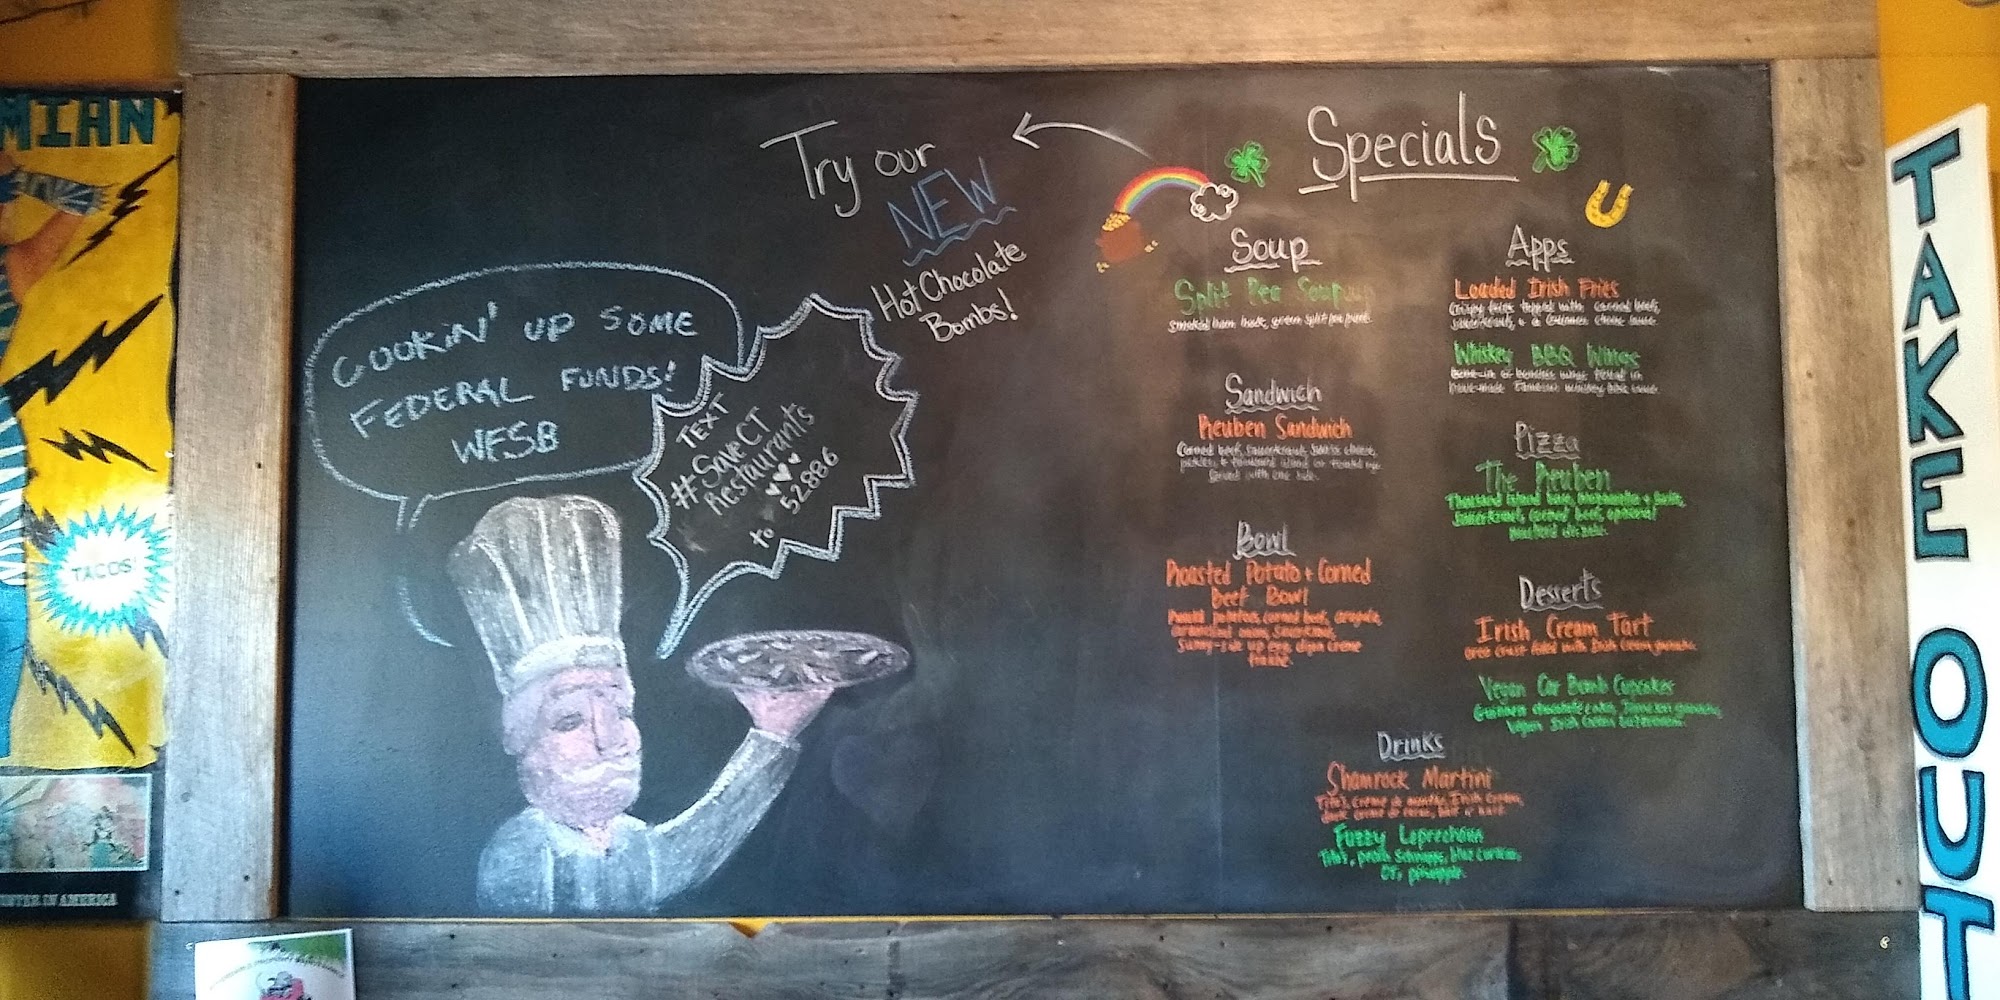 MIAN
TACOS
Try our
NEW
Hot Chocolate
Bombs!
COOKIN' UP SOME
FEDERAL FUNDS!
WFSB
TEXT
#SaveCT
Restaurants
to 52886
Specials
Soup
Split Pea Soup
smoked ham hock, green split pea puree
Sandwich
Reuben Sandwich
Corned beef, sauerkraut, Swiss cheese,
pickles, + thousand island on toasted rye
Served with one side.
Bowl
Roasted Potato + Corned
Beef Bowl
Roasted potatoes, corned beef, arugula,
caramelized onion, sauerkraut,
Sunny-side up egg, dijon creme
fraiche.
Apps
Loaded Irish Fries
Crispy fries topped with corned beef,
sauerkraut, + a Guinness cheese sauce.
Whiskey BBQ Wings
Bone-in or boneless wings tossed in
house-made Jameson whiskey BBQ sauce.
Pizza
The Reuben
Thousand island base, mozzarella + Swiss,
sauerkraut, corned beef, optional
mustard drizzle.
Desserts
Irish Cream Tart
oreo crust filled with Irish Cream ganache.
Vegan Car Bomb Cupcakes
Guinness chocolate cake, Jameson ganache,
Vegan Irish Cream buttercream.
Drinks
Shamrock Martini
Tito's, creme de menthe, Irish Cream,
dark creme de cacao, half n' half.
Fuzzy Leprechaun
Tito's, peach schnapps, blue curacao,
OJ, pineapple.
TAKE OUT
IN AMERICA